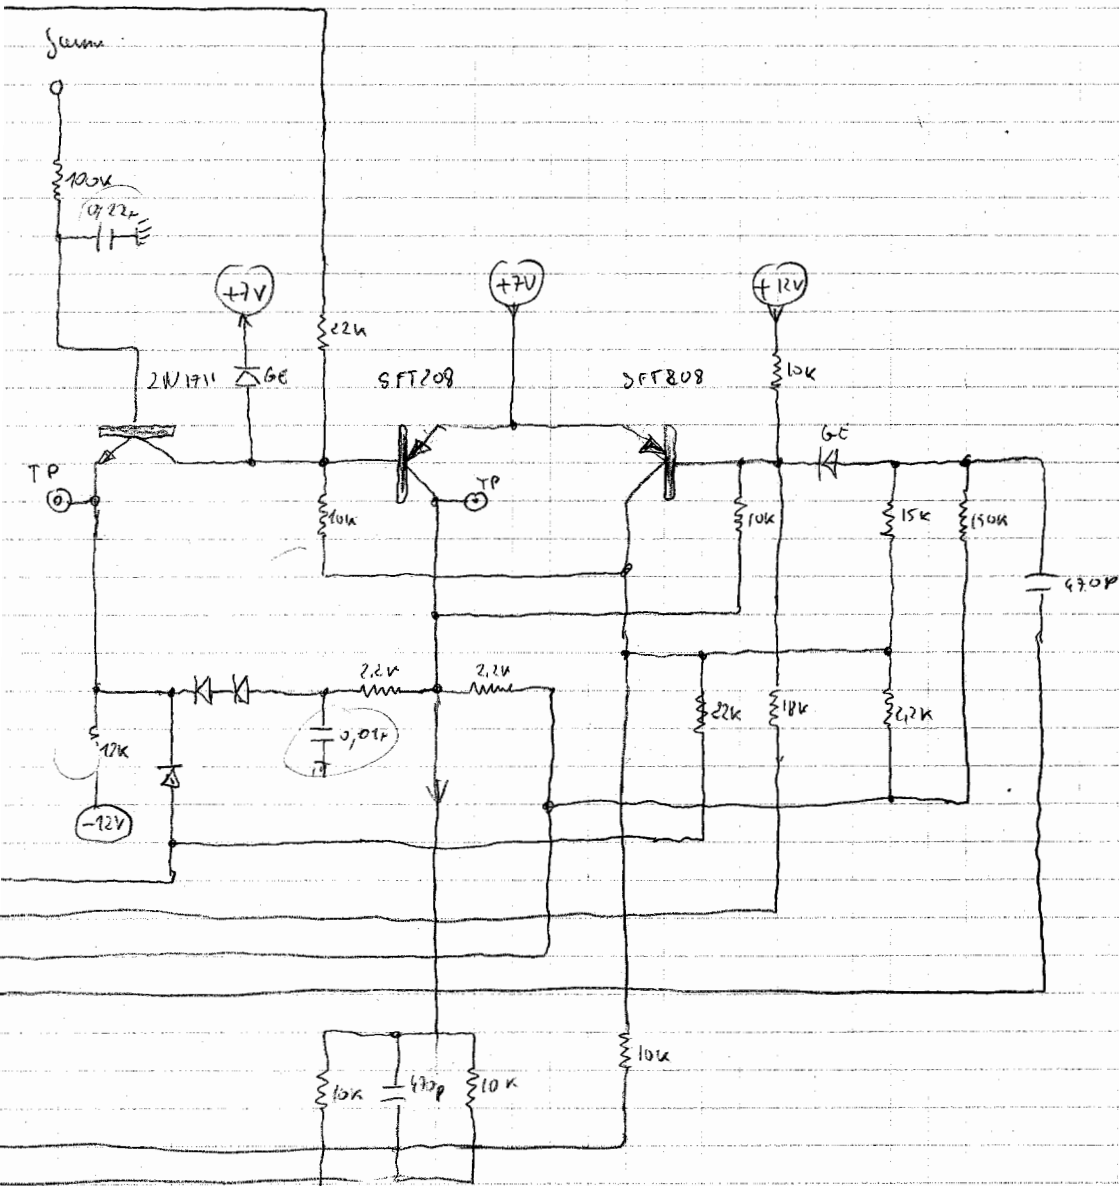 100K
0,22µ
+7V
+7V
+12V
22K
2N1711
GE
SFT208
SFT208
10K
GE
TP
TP
10K
10K
15K
150K
470P
2,2K
2,2K
22K
18K
2,2K
0,01µ
12K
-12V
10K
10K
470p
10K